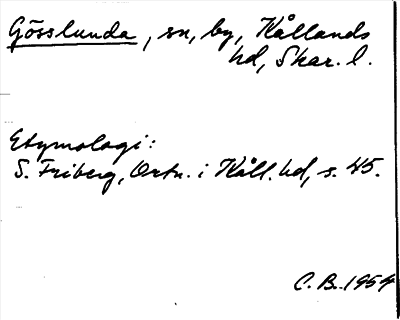 Gösslunda, sn, by, Kållands
hd, Skar. l.
Etymologi:
S. Friberg, Ortn. i Kåll. hd, s. 45.
C. B. 1954